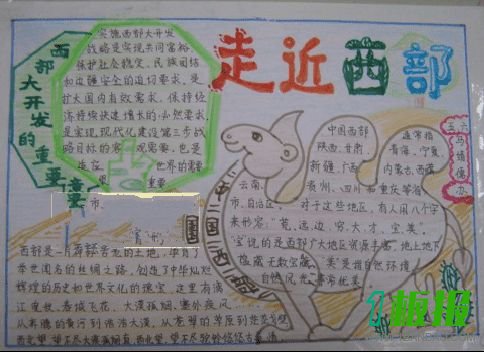 走近西部
西部大开发的重要
实施西部大开发
战略是实现共同富裕、
保护社会稳定、民族团结
和边疆安全的迫切要求、是
扩大国内有效需求、保持经
济持续快速增长的必然要求、
是实现现代化建设第三步战
略目标的客观需要、也是
世界的需
重要
市、
中国西部 通常指
陕西、甘肃、青海、宁夏、
新疆、广西、内蒙古、西藏
云南、贵州、四川和重庆等省、
市、自治区 对于这些地区、有人用八个字
来形容："荒、远、边、穷、大、才、宝、美"。
"宝"说的是西部广大地区资源丰富、地上地下
蕴藏无数宝藏 "美"是指自然环境、
自然风光
中国西部
五六
西部是一片 的土地、孕育了
举世闻名的丝绸之路、创造了中华灿烂
辉煌的历史和世界文化的瑰宝、这里有漓
江 春城飞花、大漠孤烟、塞外秦风
从奔腾的黄河到浩浩大漠、从苍翠的草原到
板报